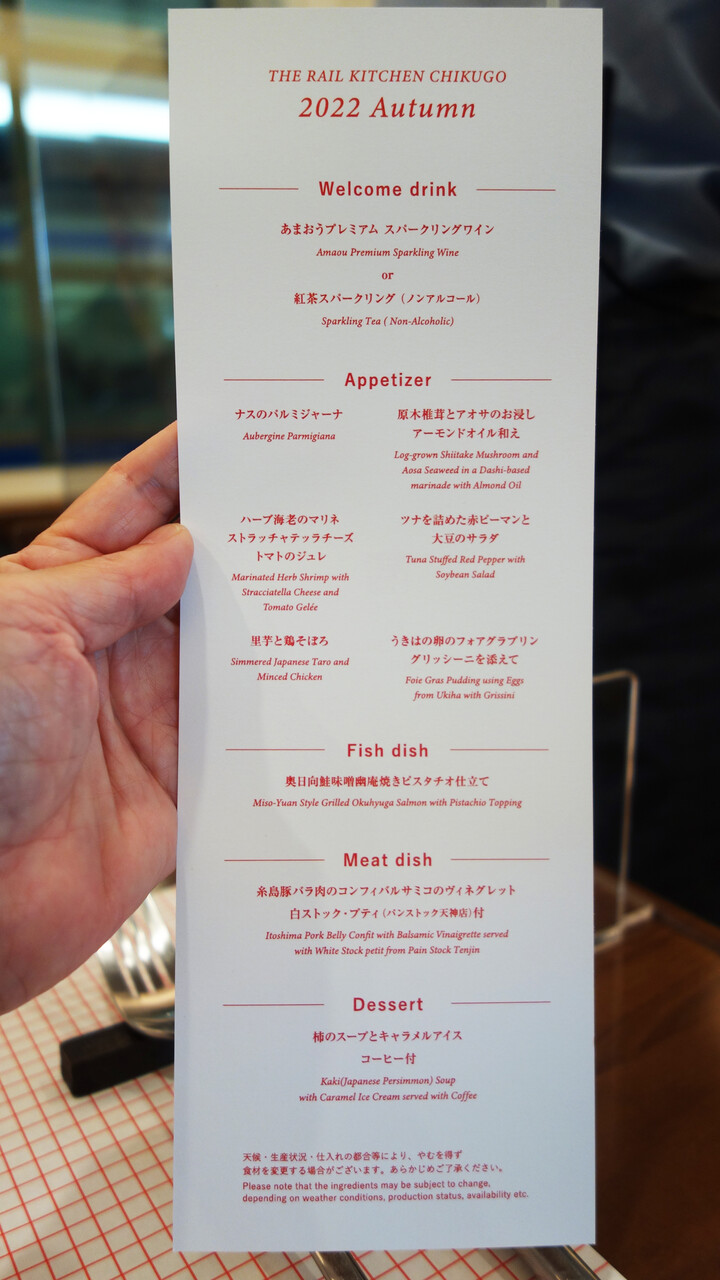 THE RAIL KITCHEN CHIKUGO
2022 Autumn
Welcome drink
あまおうプレミアム スパークリングワイン
Amaou Premium Sparkling Wine
or
紅茶スパークリング（ノンアルコール）
Sparkling Tea ( Non-Alcoholic)
Appetizer
ナスのパルミジャーナ
Aubergine Parmigiana
原木椎茸とアオサのお浸し
アーモンドオイル和え
Log-grown Shiitake Mushroom and
Aosa Seaweed in a Dashi-based
marinade with Almond Oil
ハーブ海老のマリネ
ストラッチャテッラチーズ
トマトのジュレ
Marinated Herb Shrimp with
Stracciatella Cheese and
Tomato Gelée
ツナを詰めた赤ピーマンと
大豆のサラダ
Tuna Stuffed Red Pepper with
Soybean Salad
里芋と鶏そぼろ
Simmered Japanese Taro and
Minced Chicken
うきはの卵のフォアグラプリン
グリッシーニを添えて
Foie Gras Pudding using Eggs
from Ukiha with Grissini
Fish dish
奥日向鮭味噌幽庵焼きピスタチオ仕立て
Miso-Yuan Style Grilled Okuhyuga Salmon with Pistachio Topping
Meat dish
糸島豚バラ肉のコンフィバルサミコのヴィネグレット
白ストック・プティ（パンストック天神店）付
Itoshima Pork Belly Confit with Balsamic Vinaigrette served
with White Stock petit from Pain Stock Tenjin
Dessert
柿のスープとキャラメルアイス
コーヒー付
Kaki(Japanese Persimmon) Soup
with Caramel Ice Cream served with Coffee
天候・生産状況・仕入れの都合等により、やむを得ず
食材を変更する場合がございます。あらかじめご了承ください。
Please note that the ingredients may be subject to change,
depending on weather conditions, production status, availability etc.